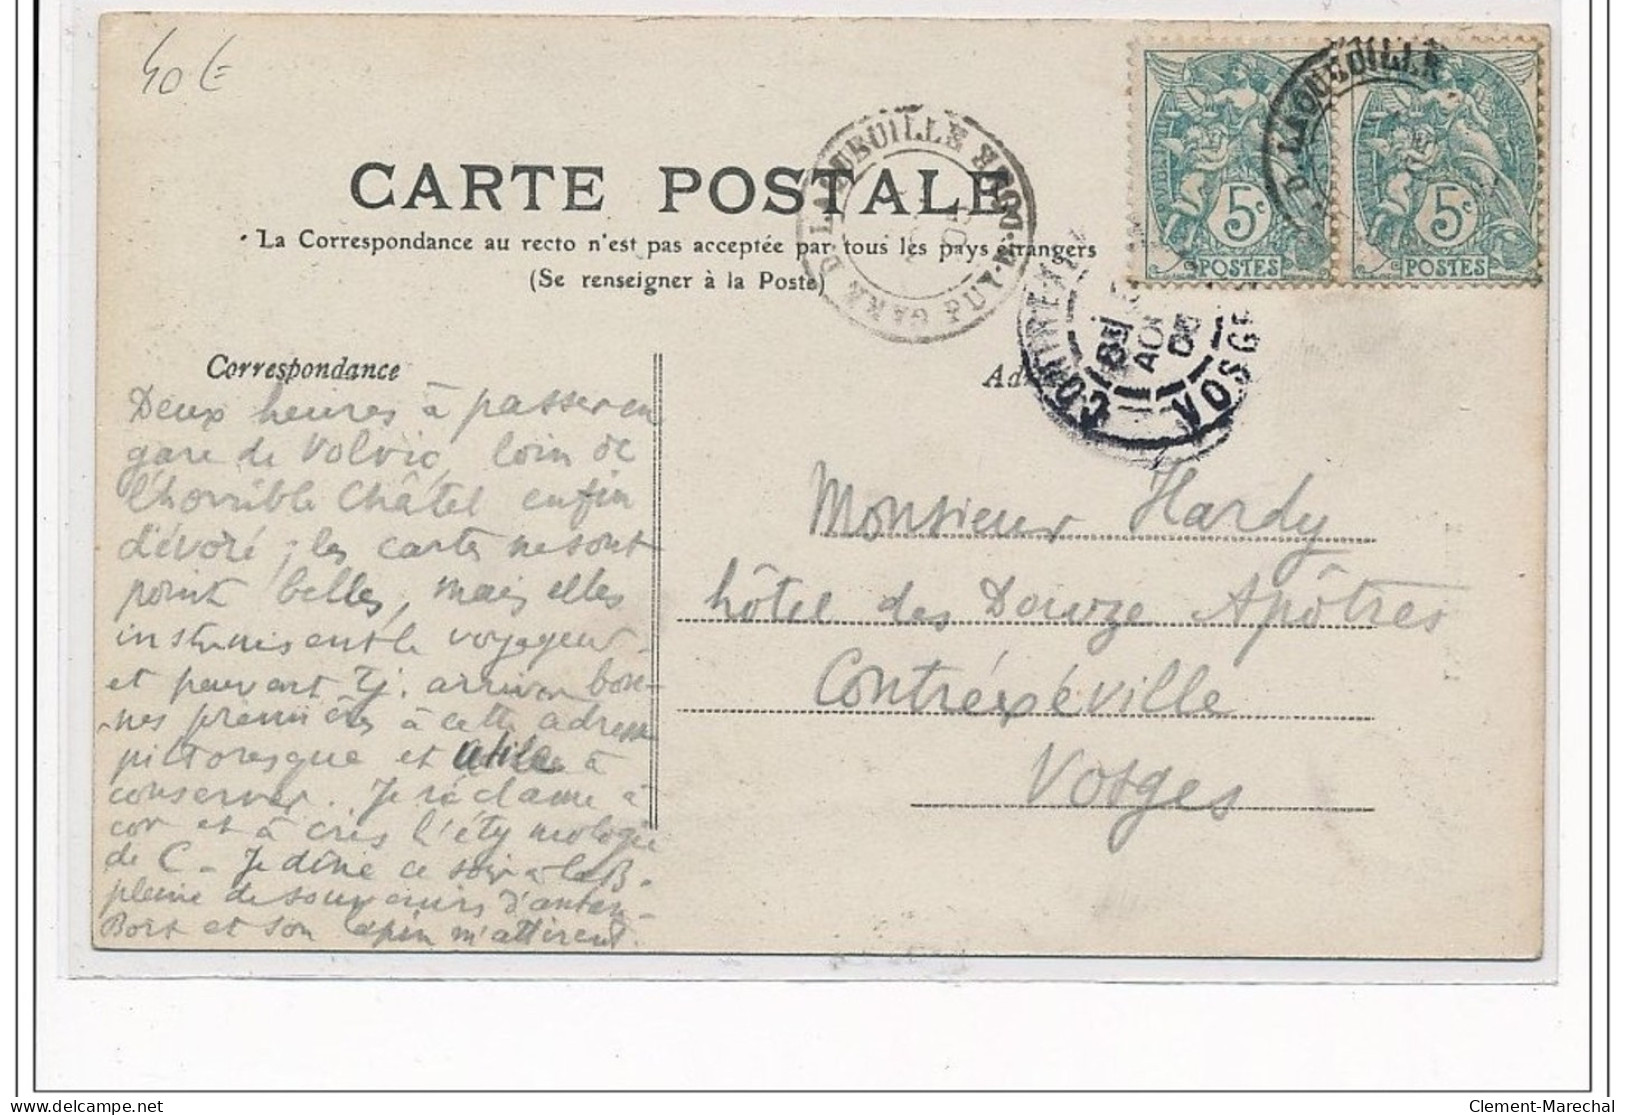 40 €
CARTE POSTALE
La Correspondance au recto n'est pas acceptée par tous les pays étrangers
(Se renseigner à la Poste)
LAQUEUILLE GARE
PUY-DE-DOME
LAQUEUILLE
5c
POSTES
5c
POSTES
CONTREXEV
VOSGE
8E
AOU
Correspondance
Deux heures à passer en
gare de Volvic, loin de
l'horrible Châtel enfin
dévoré ; les cartes ne sont
point belles, mais elles
instruisent le voyageur
et peuvent arriver bon-
nes premières à cette adresse
pittoresque et utile à
conserver. Je réclame à
cor et à cris l'étymologie
de C - Je dîne ce soir à la B.
pleine de souvenirs d'antan -
Bort et son lapin m'attirent.
Ad
Monsieur Hardy
hôtel des Douze Apôtres
Contréxéville
Vosges
delcampe.net
Clement-Marechal